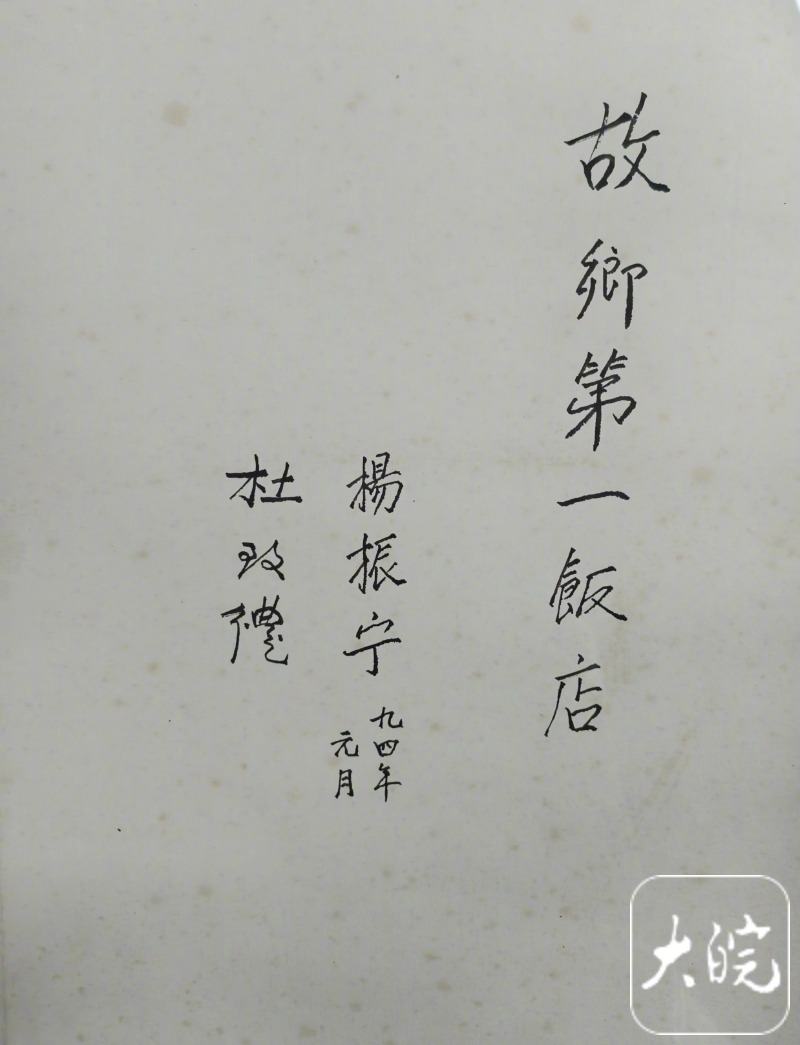 故鄉第一飯店
楊振宁
九四年
元月
杜致禮
大皖